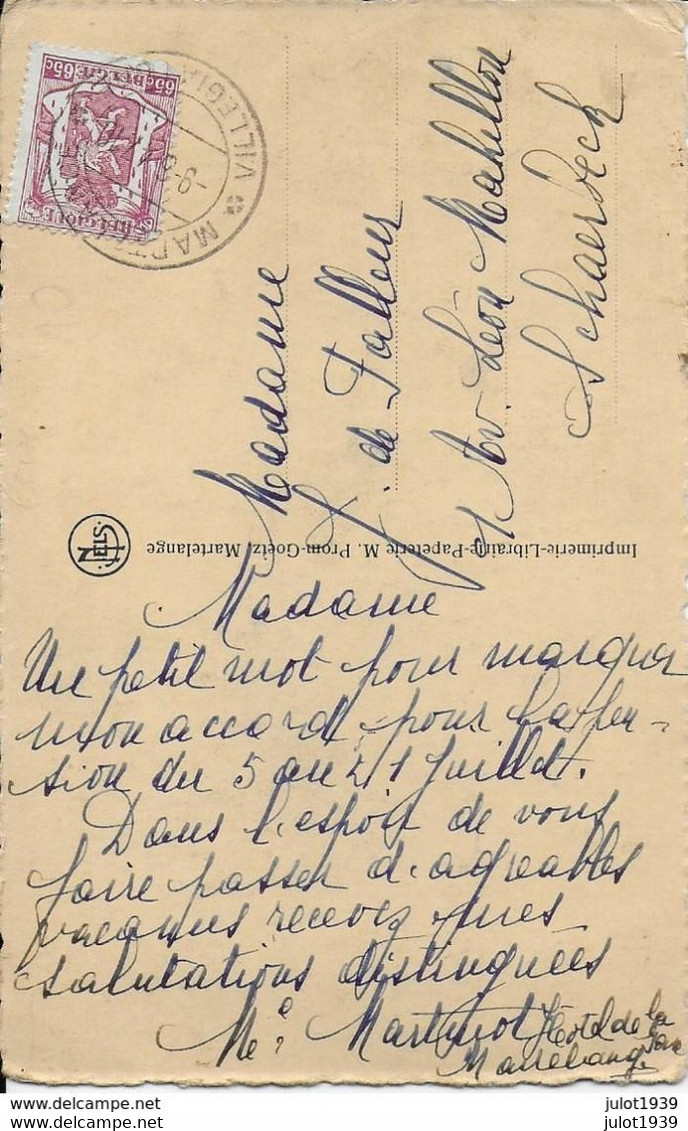 65c BELGIË 65c
BELGIQUE
VILLEGIA
MART
Madame
J. de Falleur
Av. Léon Mahillon
Schaerbeek
NELS
Imprimerie-Librairie-Papeterie M. Prom-Goetz, Martelange
Madame
Un petit mot pour marquer
mon accord pour la pen-
sion du 5 au 21 juillet.
Dans l'espoir de vous
faire passer d'agréables
vacances recevez mes
salutations distinguées
Me. Martinot Hôtel de la
Martelange
julot1939
julot1939